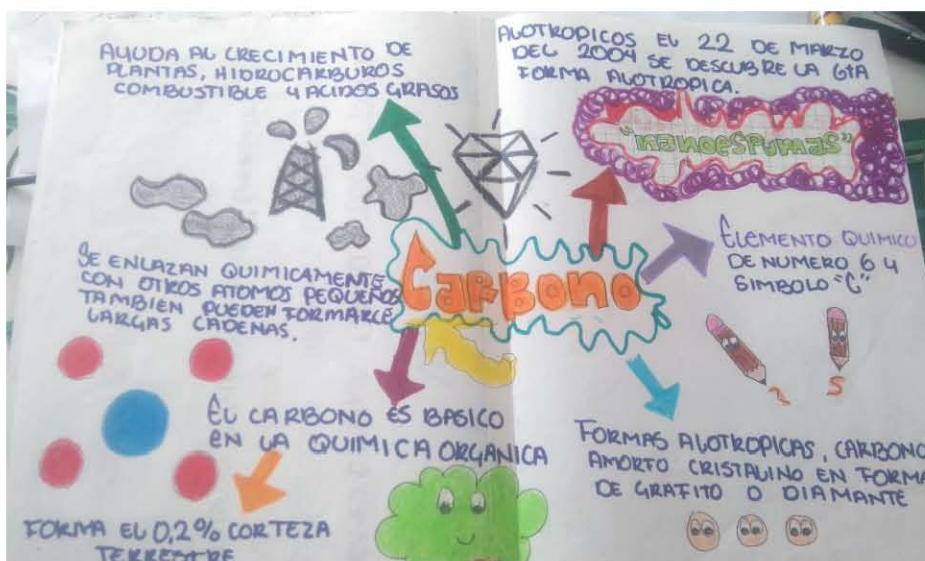 AYUDA AL CRECIMIENTO DE
PLANTAS, HIDROCARBUROS
COMBUSTIBLE Y ACIDOS GRASOS
ALOTROPICOS EL 22 DE MARZO
DEL 2004 SE DESCUBRE LA 6TA
FORMA ALOTROPICA.
"nanoespumas"
ELEMENTO QUIMICO
DE NUMERO 6 Y
SIMBOLO "C"
SE ENLAZAN QUIMICAMENTE
CON OTROS ATOMOS PEQUEÑOS
TAMBIEN PUEDEN FORMARCE
LARGAS CADENAS.
Carbono
EL CARBONO ES BASICO
EN LA QUIMICA ORGANICA
FORMAS ALOTROPICAS, CARBONO
AMORFO CRISTALINO EN FORMA
DE GRAFITO O DIAMANTE
FORMA EL 0,2% CORTEZA
TERRESTRE